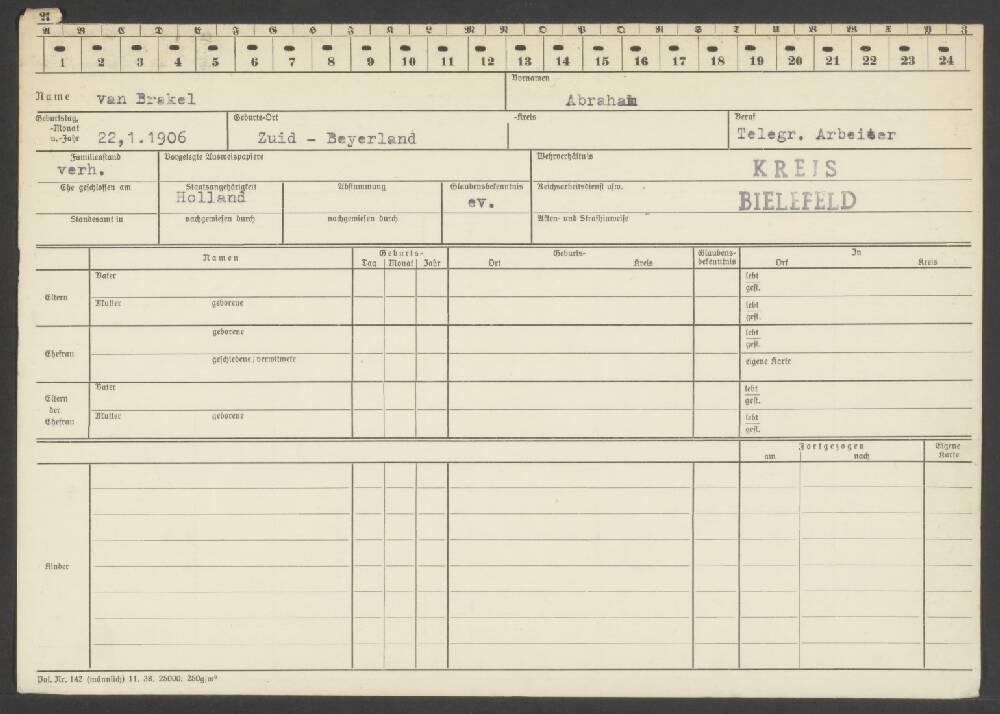 A
A B C D E F G H I J K L M N O P Q R S T U V W X Y Z
1 2 3 4 5 6 7 8 9 10 11 12 13 14 15 16 17 18 19 20 21 22 23 24
Name van Brakel Vornamen Abraham
Geburtstag, -Monat u. -Jahr 22,1.1906 Geburts-Ort Zuid - Beyerland -Kreis Beruf Telegr. Arbeiter
Familienstand verh. Vorgelegte Ausweispapiere Wehrverhältnis KREIS
Ehe geschlossen am Staatsangehörigkeit Holland Abstammung Glaubensbekenntnis ev. Reichsarbeitsdienst usw. BIELEFELD
Standesamt in nachgewiesen durch nachgewiesen durch Akten- und Strafhinweise
Namen Geburts- Geburts- Glaubens- In
Tag Monat Jahr Ort Kreis bekenntnis Ort Kreis
Eltern Vater lebt
gest.
Mutter geborene lebt
gest.
Ehefrau geborene lebt
gest.
geschiedene/verwitwete eigene Karte
Eltern der Ehefrau Vater lebt
gest.
Mutter geborene lebt
gest.
Fortgezogen Eigene
am nach Karte
Kinder
Pol. Nr. 142 (männlich) 11. 38. 25000. 250g/m²